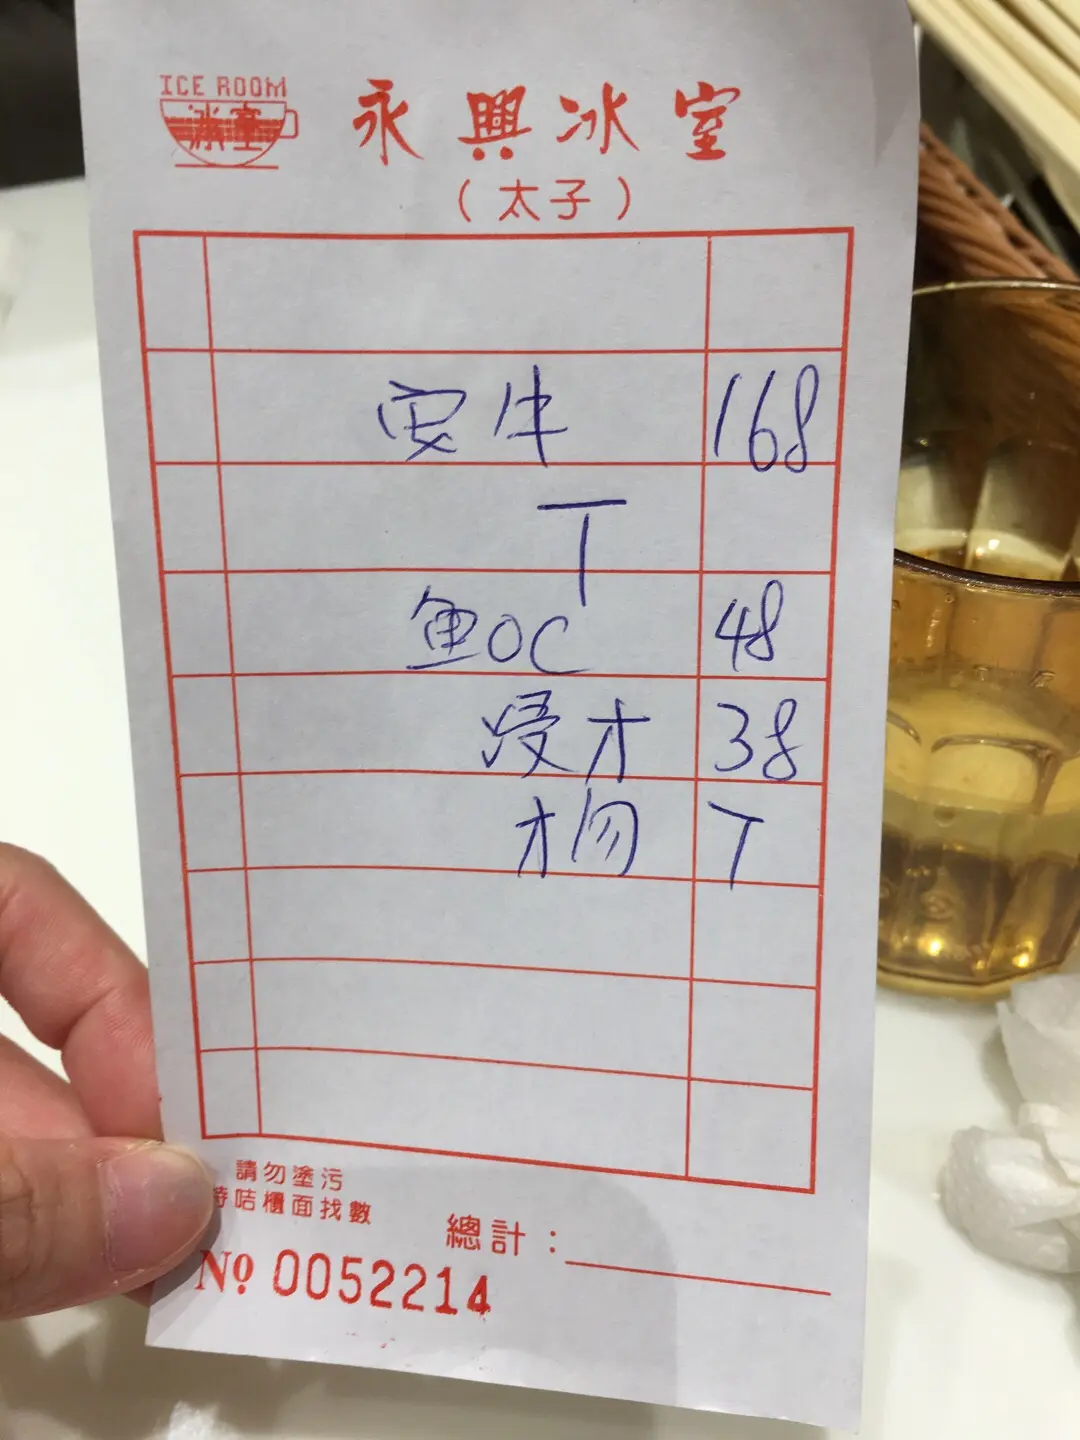 ICE ROOM
冰室
永興冰室
（太子）
安牛 168
T
魚OC 48
浸才 38
才勿 T
請勿塗污
持咭櫃面找數
總計：
Nº 0052214